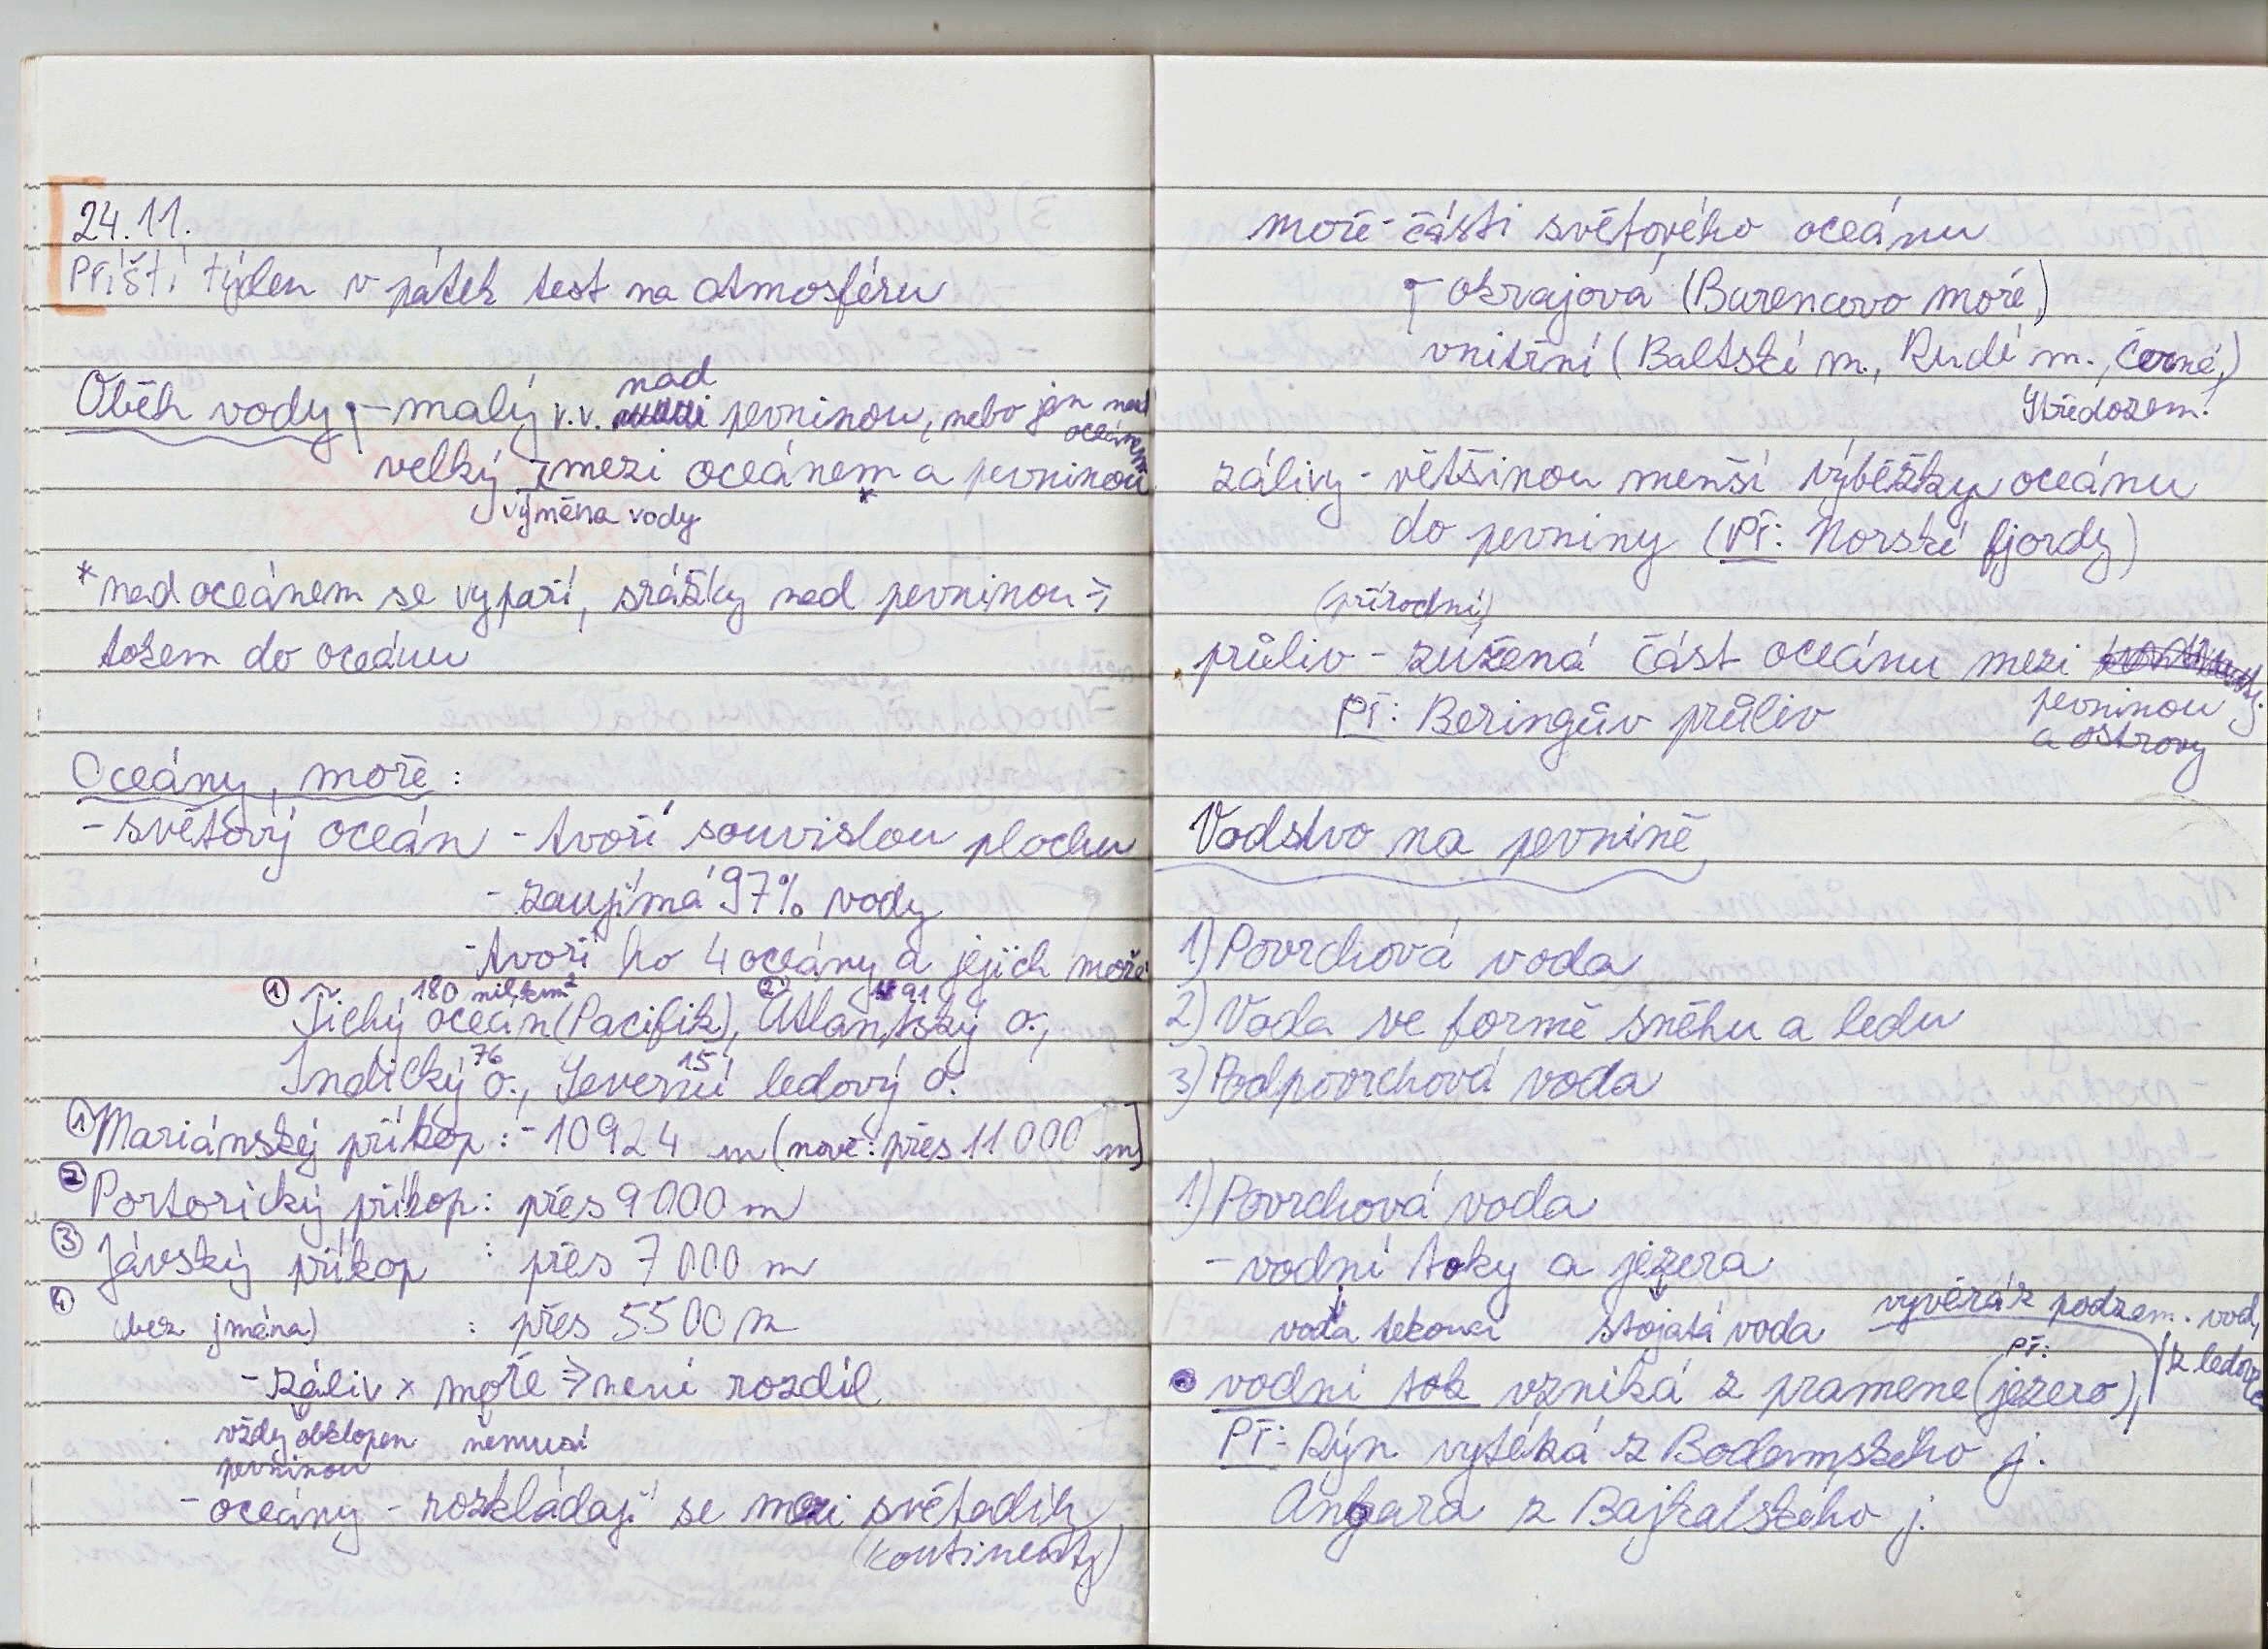 24.11.
Příští týden v pátek test na atmosféru
Oběh vody - malý v.v. nad pevninou, nebo jen nad oceánem
velký - mezi oceánem a pevninou *
výměna vody
* nad oceánem se vypaří, srážky nad pevninou =>
tokem do oceánu
Oceány, moře:
- světový oceán - tvoří souvislou plochu
- zaujímá 97% vody
- tvoří ho 4 oceány a jejich moře
① 180 mil. km² ② 91
Tichý oceán (Pacifik), Atlantský o.,
76 15
Indický o., Severní ledový o.
① Mariánský příkop: - 10924 m (nově: přes 11000 m)
② Portorický příkop: přes 9000 m
③ Jávský příkop : přes 7000 m
④ (bez jména) : přes 5500 m
- záliv x moře => není rozdíl
vždy obklopen nemusí
pevninou
- oceány - rozkládají se mezi světadíly
(kontinenty)
moře - části světového oceánu
- okrajová (Barencovo moře)
vnitřní (Baltské m., Rudé m., Černé,)
Středozem.
zálivy - většinou menší výběžky oceánu
do pevniny (Př: Norské fjordy)
(přírodní)
průliv - zúžená část oceánu mezi
pevninou
a ostrovy
Př: Beringův průliv
Vodstvo na pevnině
1) Povrchová voda
2) Voda ve formě sněhu a ledu
3) Podpovrchová voda
1.) Povrchová voda
- vodní toky a jezera
voda tekoucí stojatá voda
vyvěrá z podzem. vody
Př: z ledovce
• vodní tok vzniká z pramene (jezero),
Př: Rýn vytéká z Bodamského j.
Angara z Bajkalského j.